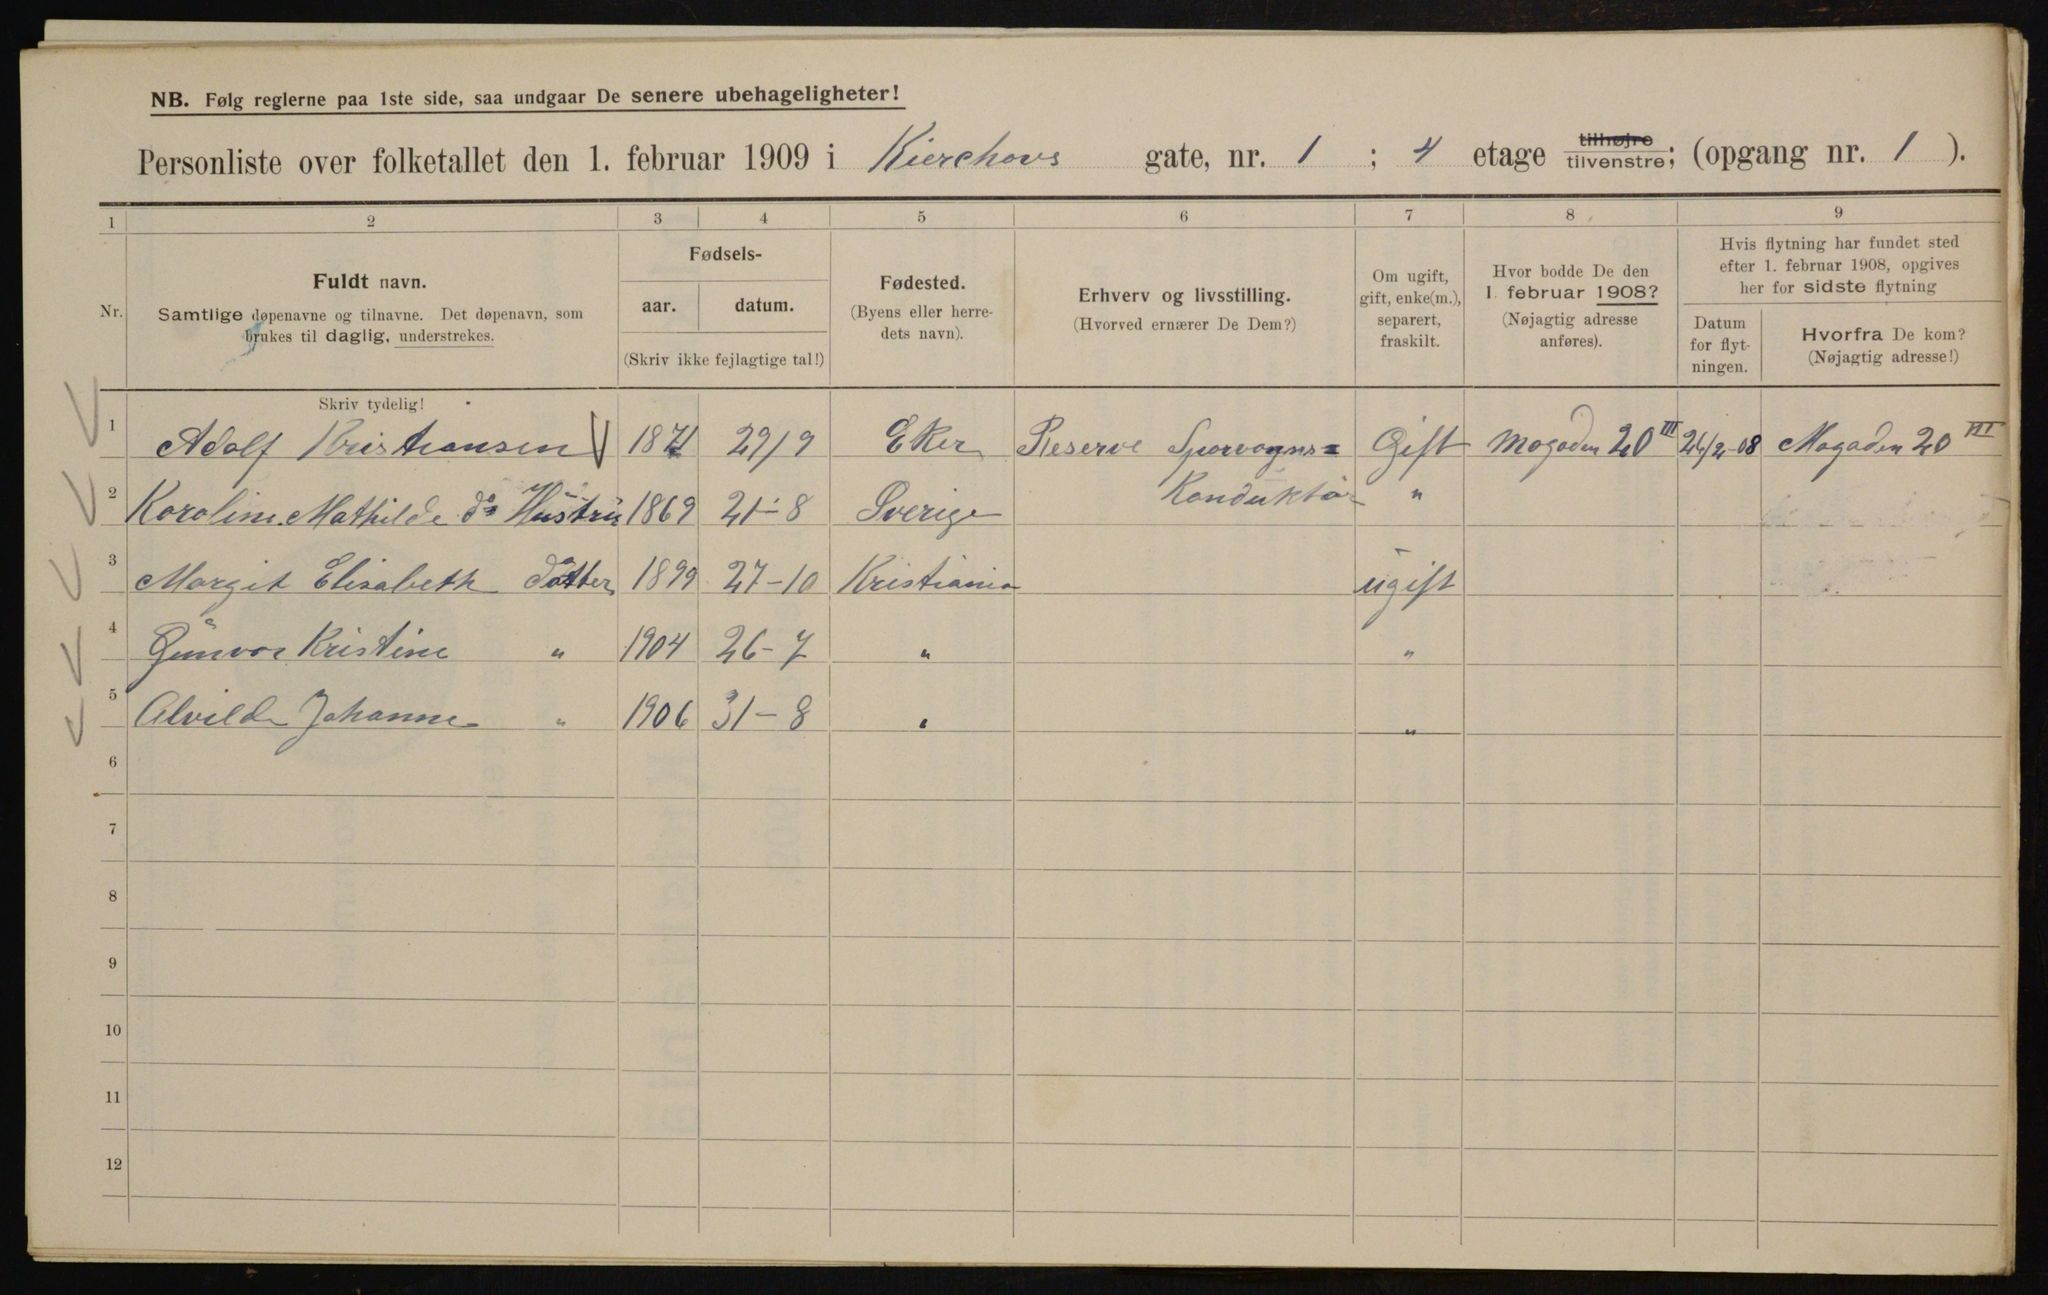 NB. Følg reglerne paa 1ste side, saa undgaar De senere ubehageligheter!
Personliste over folketallet den 1. februar 1909 i Kierchows gate, nr. 1 ; 4 etage tilhøjre tilvenstre; (opgang nr. 1 ).
1 2 3 4 5 6 7 8 9
Nr.
Fuldt navn.
Samtlige døpenavne og tilnavne. Det døpenavn, som
brukes til daglig, understrekes.
Skriv tydelig!
Fødsels-
aar. datum.
(Skriv ikke fejlagtige tal!)
Fødested.
(Byens eller herre-
dets navn).
Erhverv og livsstilling.
(Hvorved ernærer De Dem?)
Om ugift,
gift, enke(m.),
separert,
fraskilt.
Hvor bodde De den
1. februar 1908?
(Nøjagtig adresse
anføres).
Hvis flytning har fundet sted
efter 1. februar 1908, opgives
her for sidste flytning
Datum
for flyt-
ningen.
Hvorfra De kom?
(Nøjagtig adresse!)
1 Adolf Kristiansen 1871 29/9 Eker Reserve Sporvogns= Gift Mogaden 20 III 26/2-08 Mogaden 20 III
2 Karoline Mathilde do Hustru 1869 21-8 Sverige Konduktør "
3 Margit Elisabeth Datter 1899 27-10 Kristiania ugift
4 Gunvor Kristine " 1904 26-7 " "
5 Alvilde Johanne " 1906 31-8 " "
6
7
8
9
10
11
12